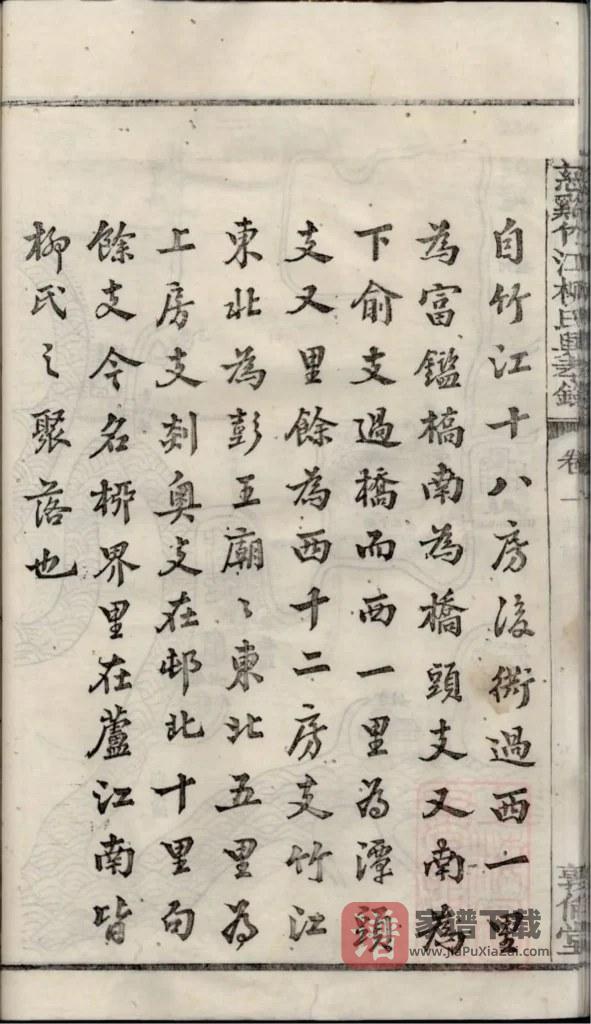 慈谿竹江柳氏錄 卷一 敦倫堂
自竹江十八房後衖過西一里
為富鑑橋南為橋頭支又南為
下俞支過橋而西一里為潭頭
支又里餘為西十二房支竹江
東北為彭王廟〻東北五里為
上房支剡奧支在邨北十里句
餘支今名栁界里在蘆江南皆
柳氏之聚落也
谱 家谱下载
www.JiaPuXiaZai.com